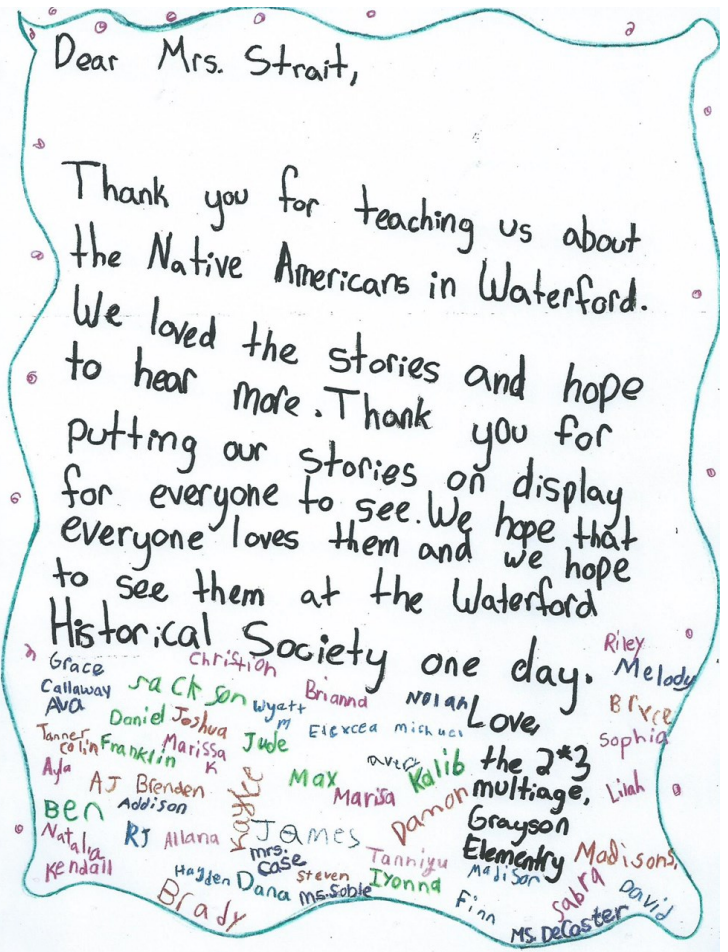 Dear Mrs. Strait,
Thank you for teaching us about
the Native Americans in Waterford.
We loved the stories and hope
to hear more. Thank you for
putting our stories on display
for everyone to see. We hope that
everyone loves them and we hope
to see them at the Waterford
Historical Society one day.
Love,
the 2*3
multiage,
Grayson
Elementry
Riley
Grace
Christion
Melody
Callaway
Jackson
Brianna
Nolan
Ava
Wyatt
M
Bryce
Daniel
Joshua
Elexcea
Michael
Tanner
Colin
Franklin
Marissa
K
Jude
Sophia
Ayla
Avery
Kalib
AJ
Brenden
Kaylee
Max
Marisa
Lilah
Ben
Addison
Damon
Natalia
RJ
Allana
James
Kendall
Mrs.
Case
Tanniyu
Madison S.
Hayden
Dana
Steven
Iyonna
Madison
Sabra
David
Brady
Ms. Soble
Finn
Ms. DeCoster